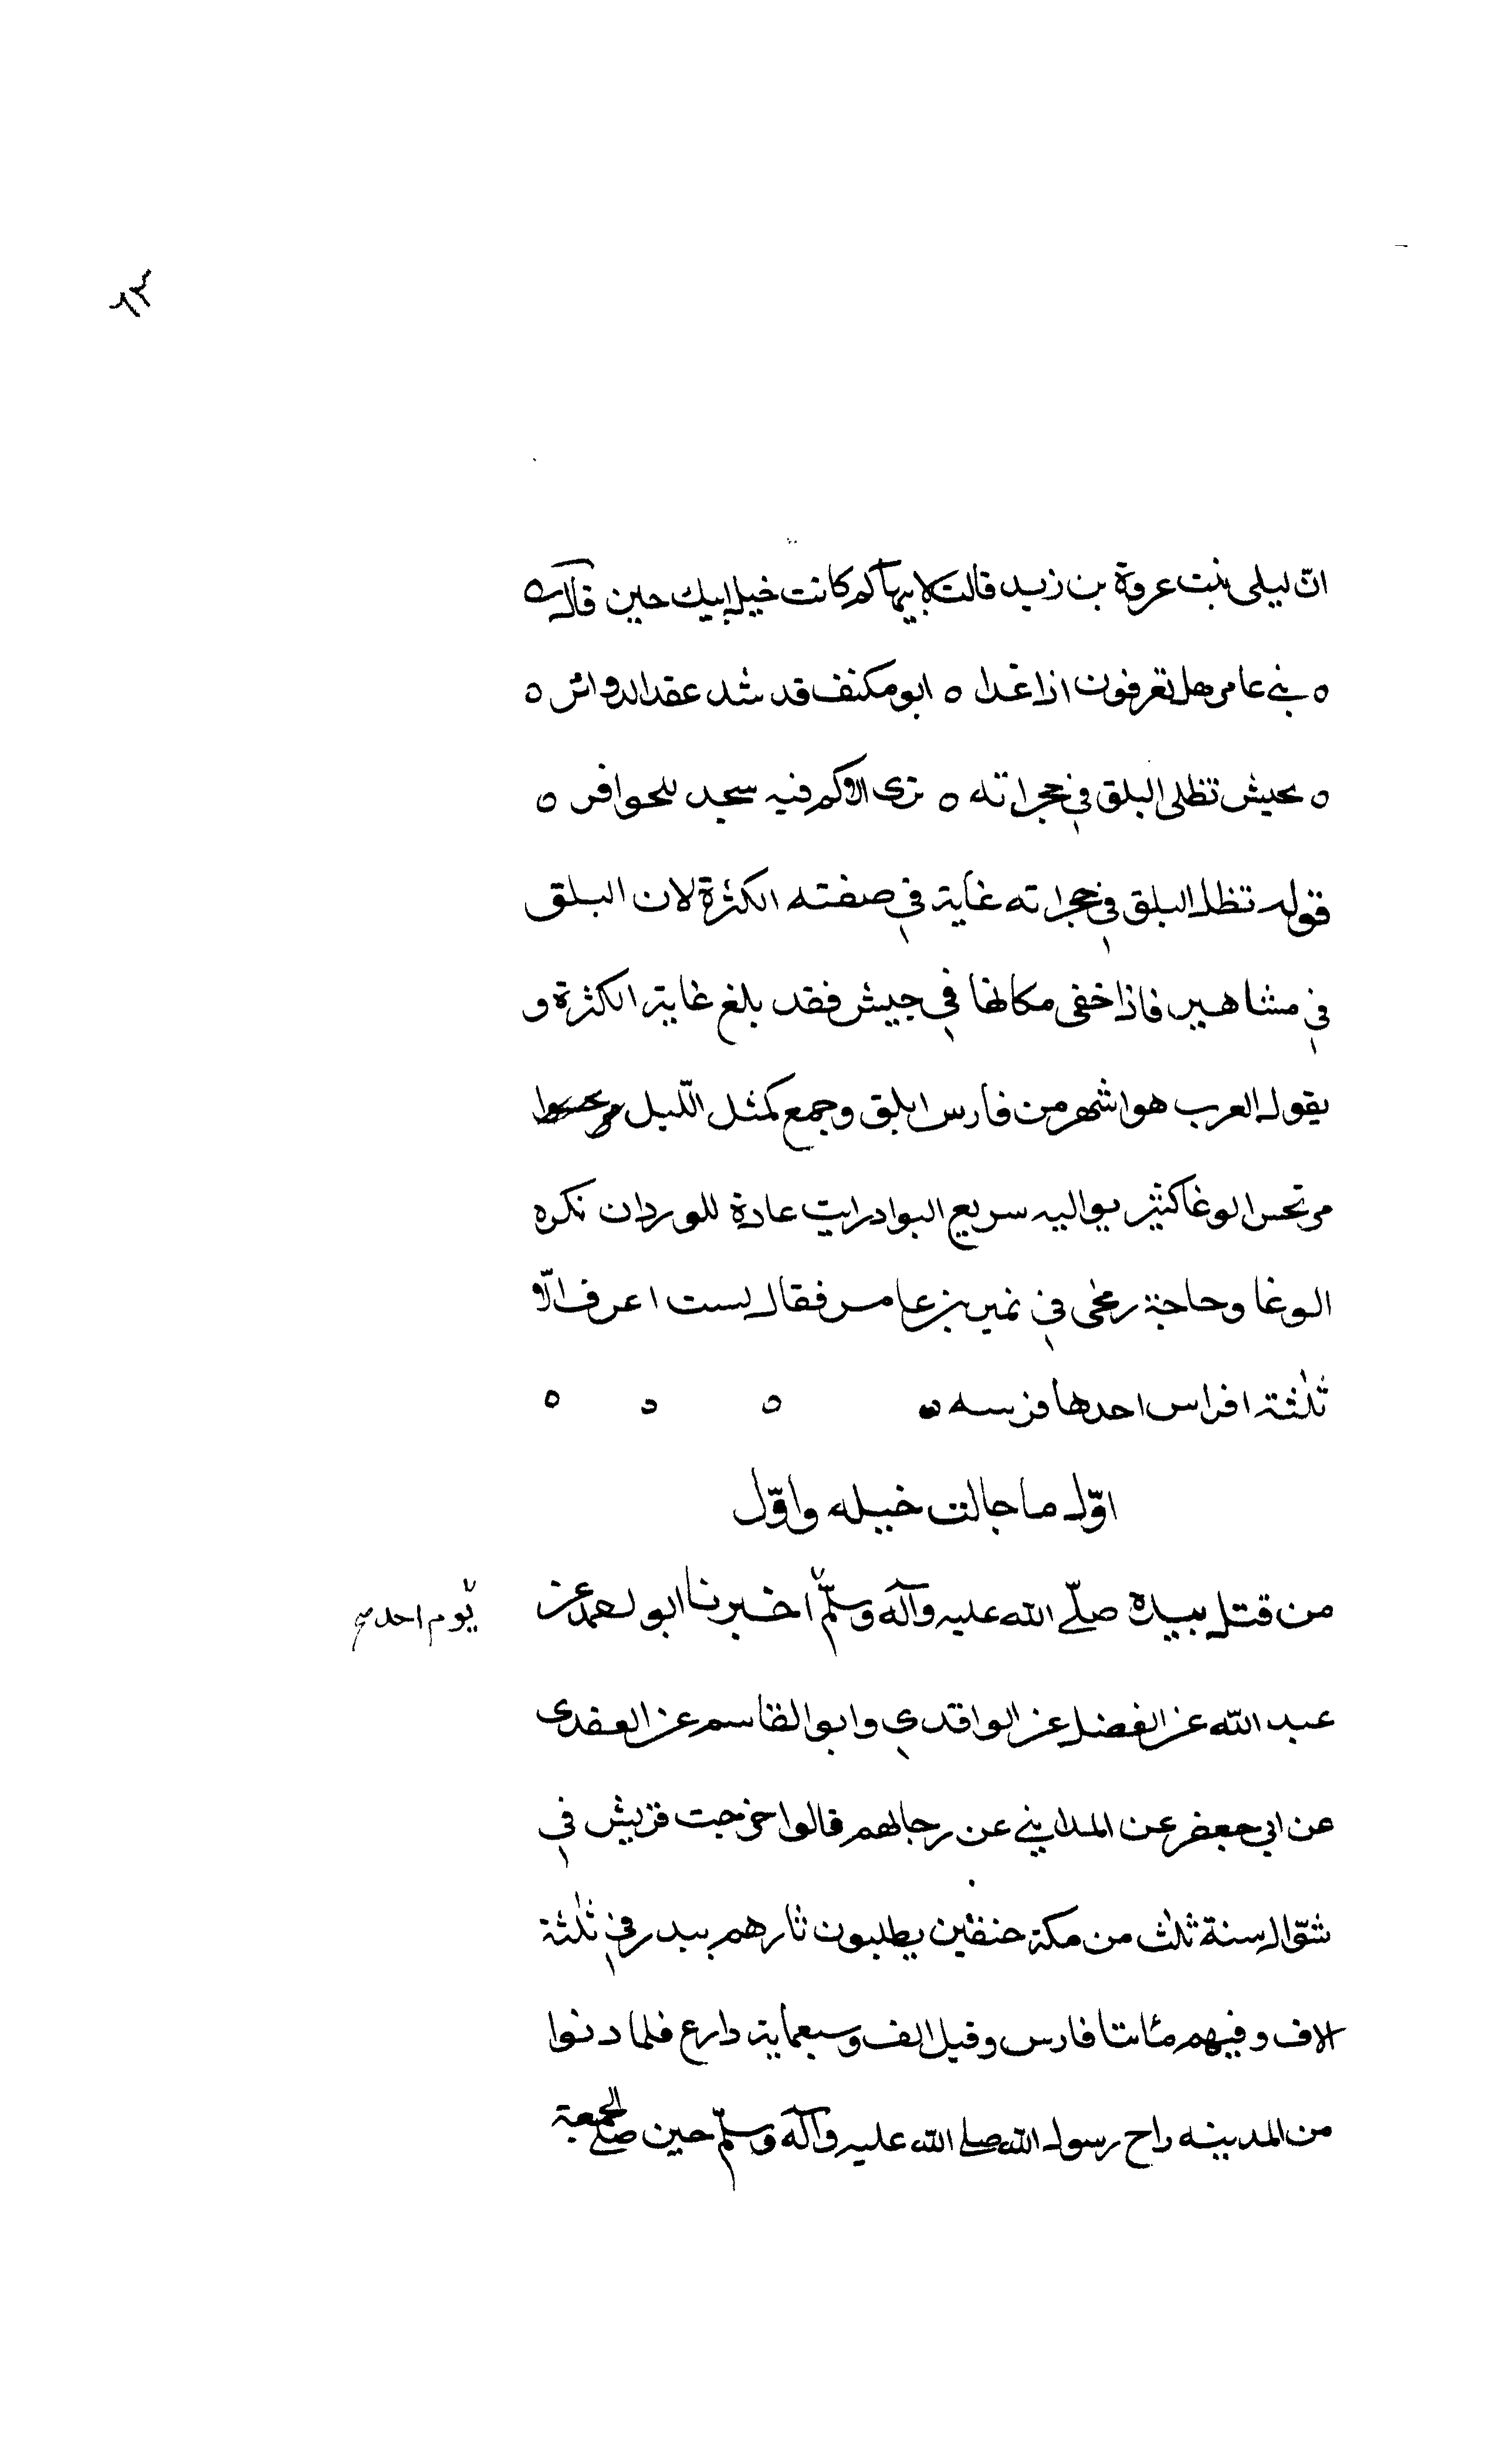 ٦٣
انّ ليلى بنت عروة بن زيد قالت لابيها كم كانت خيل ابيك حين قال ه
ه بني عامر هل تعرفون اذا غدا ه ابو مكنف قد شد عقد الدوائر ه
ه بجيش تظل البلق في حجراته ه ترى الاكم فيه سجد للحوافر ه
قوله تظل البلق في حجراته غاية في صفته الكثرة لان البلق
في مشاهير فاذا خفى مكانها في جيش فقد بلغ غاية الكثرة و
يقول العرب هو اشهر من فارس ابلق وجمع كمثل اللّيل
مرتجس الوغا كثير بواليه سريع البوادر ابت عادة للورد ان تكره
الوغا وحاجة رمحى في نمير بن عامر فقال لست اعرف الّا
ثلٰثة افراس احدها فرسه ه ه ه ه
اوّل ما جالت خيله واوّل
من قتل بيده صلّے الله عليه وآله وسلّم اخبرنا ابو احمد عن
يوم احد
عبد الله عن الفضل عن الواقدي وابو القاسم عن العقدى
عن ابي جعفر عن المدايني عن رجالهم قالوا خرجت قريش في
شوّال سنة ثلٰث من مكة حنقين يطلبون ثارهم ببدر في ثلٰثة
الاف وفيهم مائتا فارس وقيل الف وسبعماية دارع فلما دنوا
من المدينه راح رسول الله صلے الله عليه وآله وسلّم حين صلے الجمعة